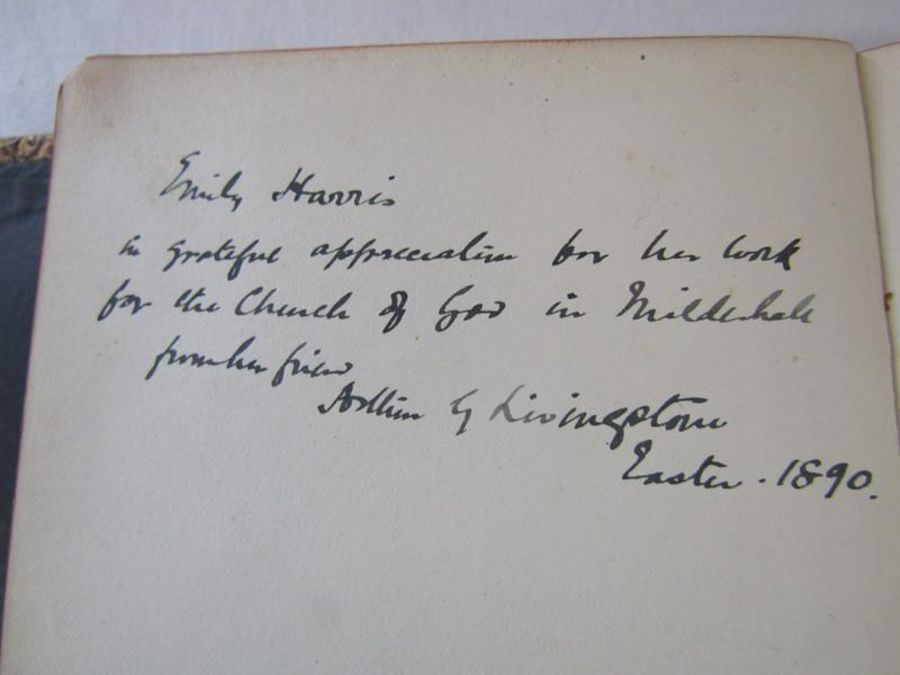 Emily Harris
in grateful appreciation for her work
for the Church of God in Mildenhall
from her friend
Arthur G Livingstone
Easter . 1890.